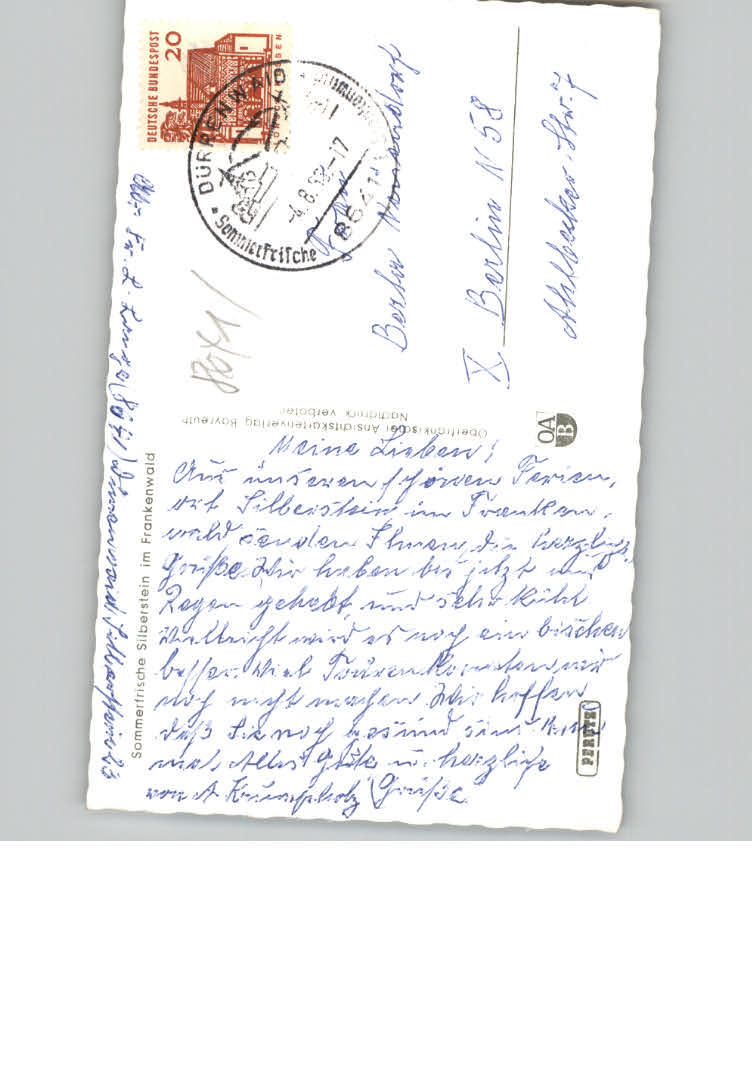 DEUTSCHE BUNDESPOST
20
DÜRRENWAID
8641
-4.8.68-17
Sommerfrische
Berlin
X Berlin N 58
Ahlbecker-Str. 7
8041
Oberfränkischer Ansichtskartenverlag Bayreuth
Nachdruck verboten
OA
B
Meine Lieben!
Aus unseren schönen Ferien,
ort Silberstein im Franken,
wald senden Ihnen die herzlichs.
Grüße. Wir haben bis jetzt nur
Regen gehabt, und sehr kühl
vielleicht wird es noch ein bischen
besser. Viel Touren konnten wir
noch nicht machen. Wir hoffen
daß Sie noch gesund sind.
mal Alles Gute u. herzliche
von A Krumpholz Grüße
Sommerfrische Silberstein im Frankenwald
Abs. Silberstein 23
PERUTZ